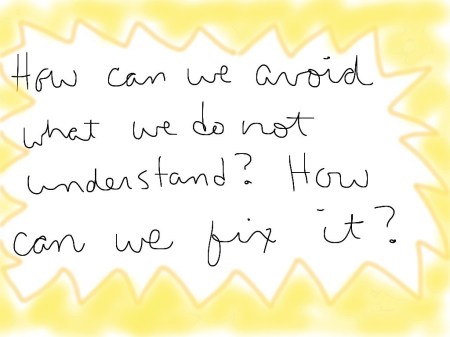 How can we avoid
what we do not
understand? How
can we fix it?